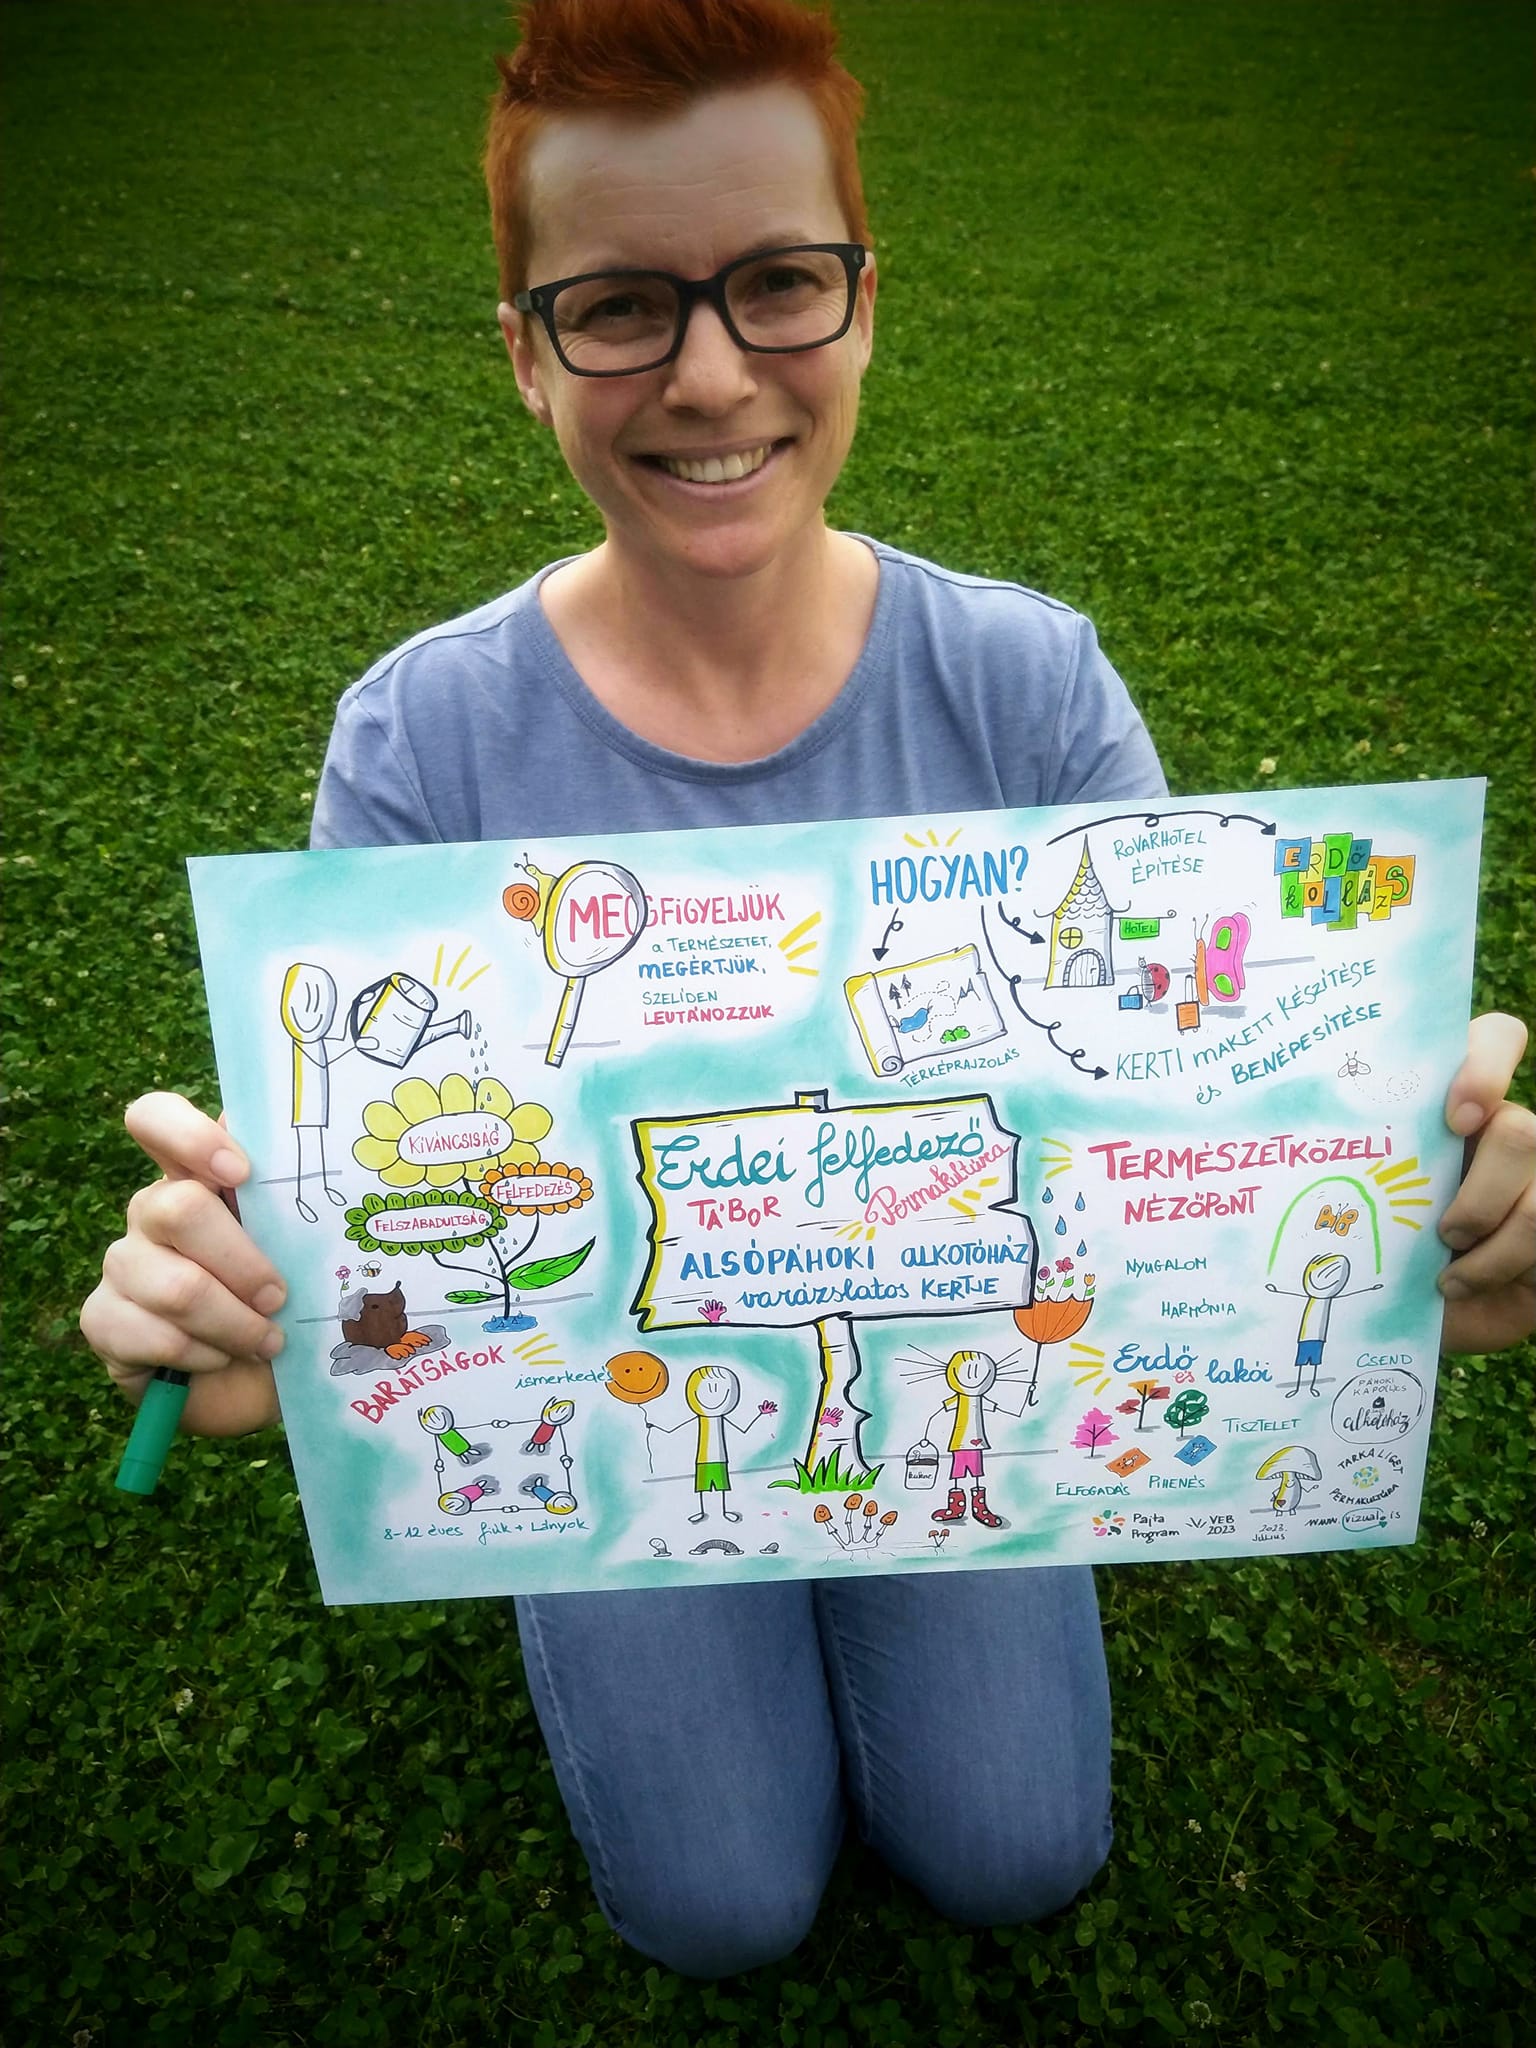 MEGFIGYELJÜK
a TERMÉSZETET,
MEGÉRTJÜK,
SZELÍDEN
LEUTÁNOZZUK
HOGYAN?
ROVARHOTEL
ÉPÍTÉSE
HOTEL
ERDŐ
KOLLÁZS
TÉRKÉPRAJZOLÁS
KERTI MAKETT KÉSZÍTÉSE
és BENÉPESÍTÉSE
KÍVÁNCSISÁG
FELFEDEZÉS
FELSZABADULTSÁG
Erdei felfedező
TÁBOR Permakultúra
ALSÓPÁHOKI ALKOTÓHÁZ
varázslatos KERTJE
TERMÉSZETKÖZELI
NÉZŐPONT
NYUGALOM
HARMÓNIA
BARÁTSÁGOK
ismerkedés
8-12 éves fiúk + LÁNYOK
Erdő és lakói
CSEND
TISZTELET
ELFOGADÁS PIHENÉS
PÁHOKI
KAPOLCS
alkotóház
TARKA LIGET
PERMAKULTÚRA
Pajta
Program
VEB
2023
2023.
július
www.vizual.is